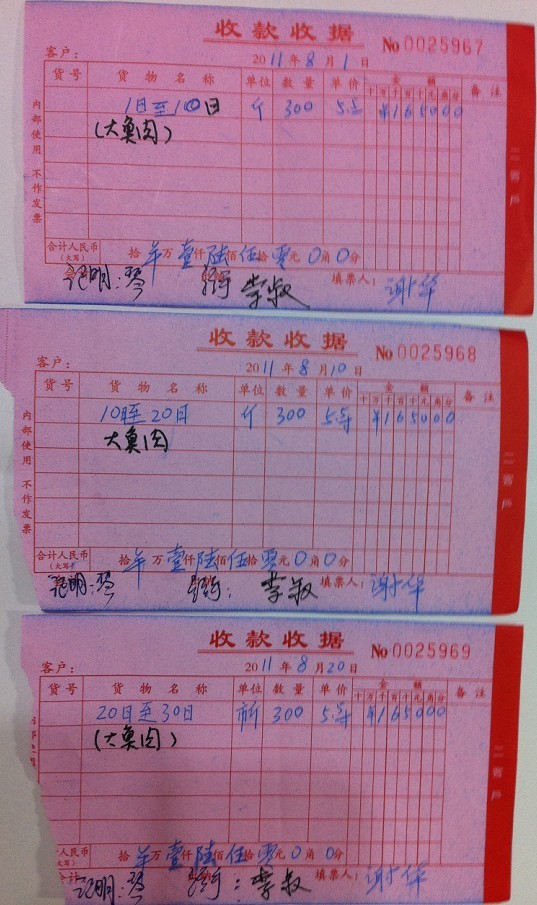 收款收据
No 0025967
客户： 2011年8月1日
货号 货物名称 单位 数量 单价 金额 备注
十万千百十元角分
1日至10日 斤 300 5.5 ¥165000
(大鱼肉)
内部使用 不作发票
二 客户
合计人民币(大写) 拾 万壹仟陆佰伍拾零元0角0分
证明: 李叔 填票人： 谢华
收款收据
No 0025968
客户： 2011年8月10日
货号 货物名称 单位 数量 单价 金额 备注
十万千百十元角分
10日至20日 斤 300 5.5 ¥165000
大鱼肉
内部使用 不作发票
二 客户
合计人民币(大写) 拾 万壹仟陆佰伍拾零元0角0分
证明: 李叔 填票人： 谢华
收款收据
No 0025969
客户： 2011年8月20日
货号 货物名称 单位 数量 单价 金额 备注
十万千百十元角分
20日至30日 300 5.5 ¥165000
(大鱼肉)
二 客户
人民币(大写) 拾 万壹仟陆佰伍拾零元0角0分
证明: 李叔 填票人： 谢华